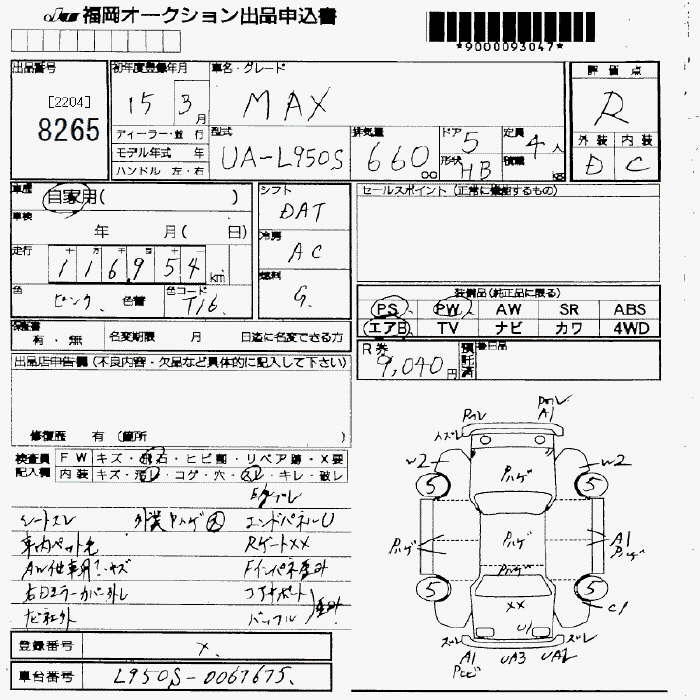 JU 福岡オークション出品申込書
*9000093047*
出品番号 [2204] 8265
初年度登録年月 15 3月
車名・グレード MAX
評価点 R
外装 D 内装 C
ディーラー・並行
モデル年式 年
ハンドル 左・右
型式 UA-L950S
排気量 660 cc
ドア 5
形状 HB
定員 4人
積載 KG
車歴 自家用( )
車検 年 月( 日)
走行 十万千百十 116,954 km
色 ピンク 色替 色コード T16
シフト DAT
冷房 AC
燃料 G
セールスポイント(正常に機能するもの)
装備品(純正品に限る)
PS PW AW SR ABS
エアB TV ナビ カワ 4WD
保証書 有・無 名変期限 月 日迄に名変できる方
R券 9,040円 預託済 後日品
出品店申告欄(不良内容・欠品など具体的に記入して下さい)
修復歴 有 (箇所 )
検査員 FW キズ・飛石・ヒビ割・リペア跡・X要
記入欄 内装 キズ・汚レ・コゲ・穴・スレ・キレ・破レ
シートスレ 外装Pハゲ大 エンドパネルU
RゲートXX
登録番号 X
車台番号 L950S-0067675
PハレA1
W2 W2
5 5
Pハゲ
Pハゲ Pハゲ A1
Pハゲ
5 5
XX C1
U1
ズレ ズレ
A1 UA3 UA2